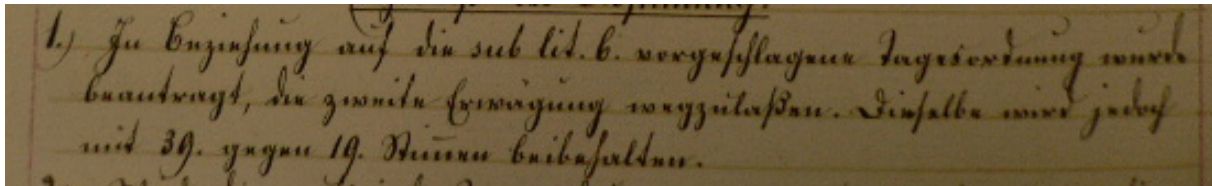 1.) In Beziehung auf die sub lit. b. vorgeschlagene Tagesordnung wurde
beantragt, die zweite Erwägung wegzulaßen. Dieselbe wird jedoch
mit 39. gegen 19. Stim̄en beibehalten.